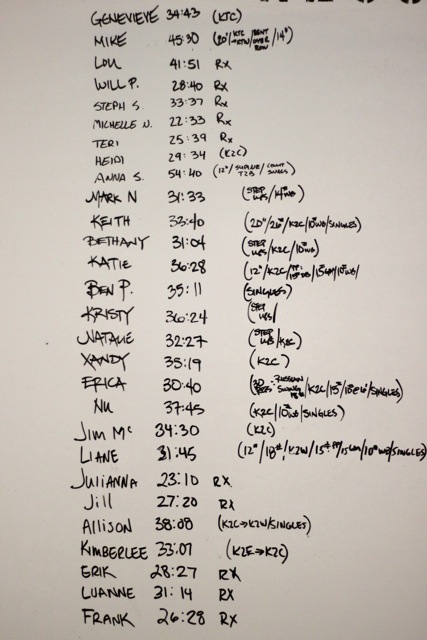 GENEVIEVE 34:43 (KTC)
MIKE 45:30 (20"/KTC→KTW/BENT OVER ROW/14#)
LOU 41:51 RX
WILL P. 28:40 RX
STEPH S. 33:37 RX
MICHELLE N. 22:33 RX
TERI 25:39 RX
HEIDI 29:34 (K2C)
ANNA S. 54:40 (12"/SUPINE T2B/
MARK N 31:33 (STEP UPS/14#WB)
KEITH 33:40 (20"/26#/K2C/10#WB/SINGLES)
BETHANY 31:04 (STEP UPS/K2C/10#WB)
KATIE 36:28 (12"/K2C/
BEN P. 35:11 (SINGLES)
KRISTY 36:24 (STEP UPS/
NATALIE 32:27 (STEP UPS/K2C)
XANDY 35:19 (K2C)
ERICA 30:40 RUSSIAN SWINGS /K2C/15#/ /SINGLES)
NU 37:45 (K2C/10#WB/SINGLES)
JIM Mc 34:30 (K2C)
LIANE 31:45 (12"/18#/K2W/15# PP/ /10# WB/SINGLES)
JULIANNA 23:10 RX
Jill 27:20 RX
Allison 38:08 (K2C→K2W/SINGLES)
KIMBERLEE 33:07 (K2E→K2C)
ERIK 28:27 RX
LUANNE 31:14 RX
FRANK 26:28 RX